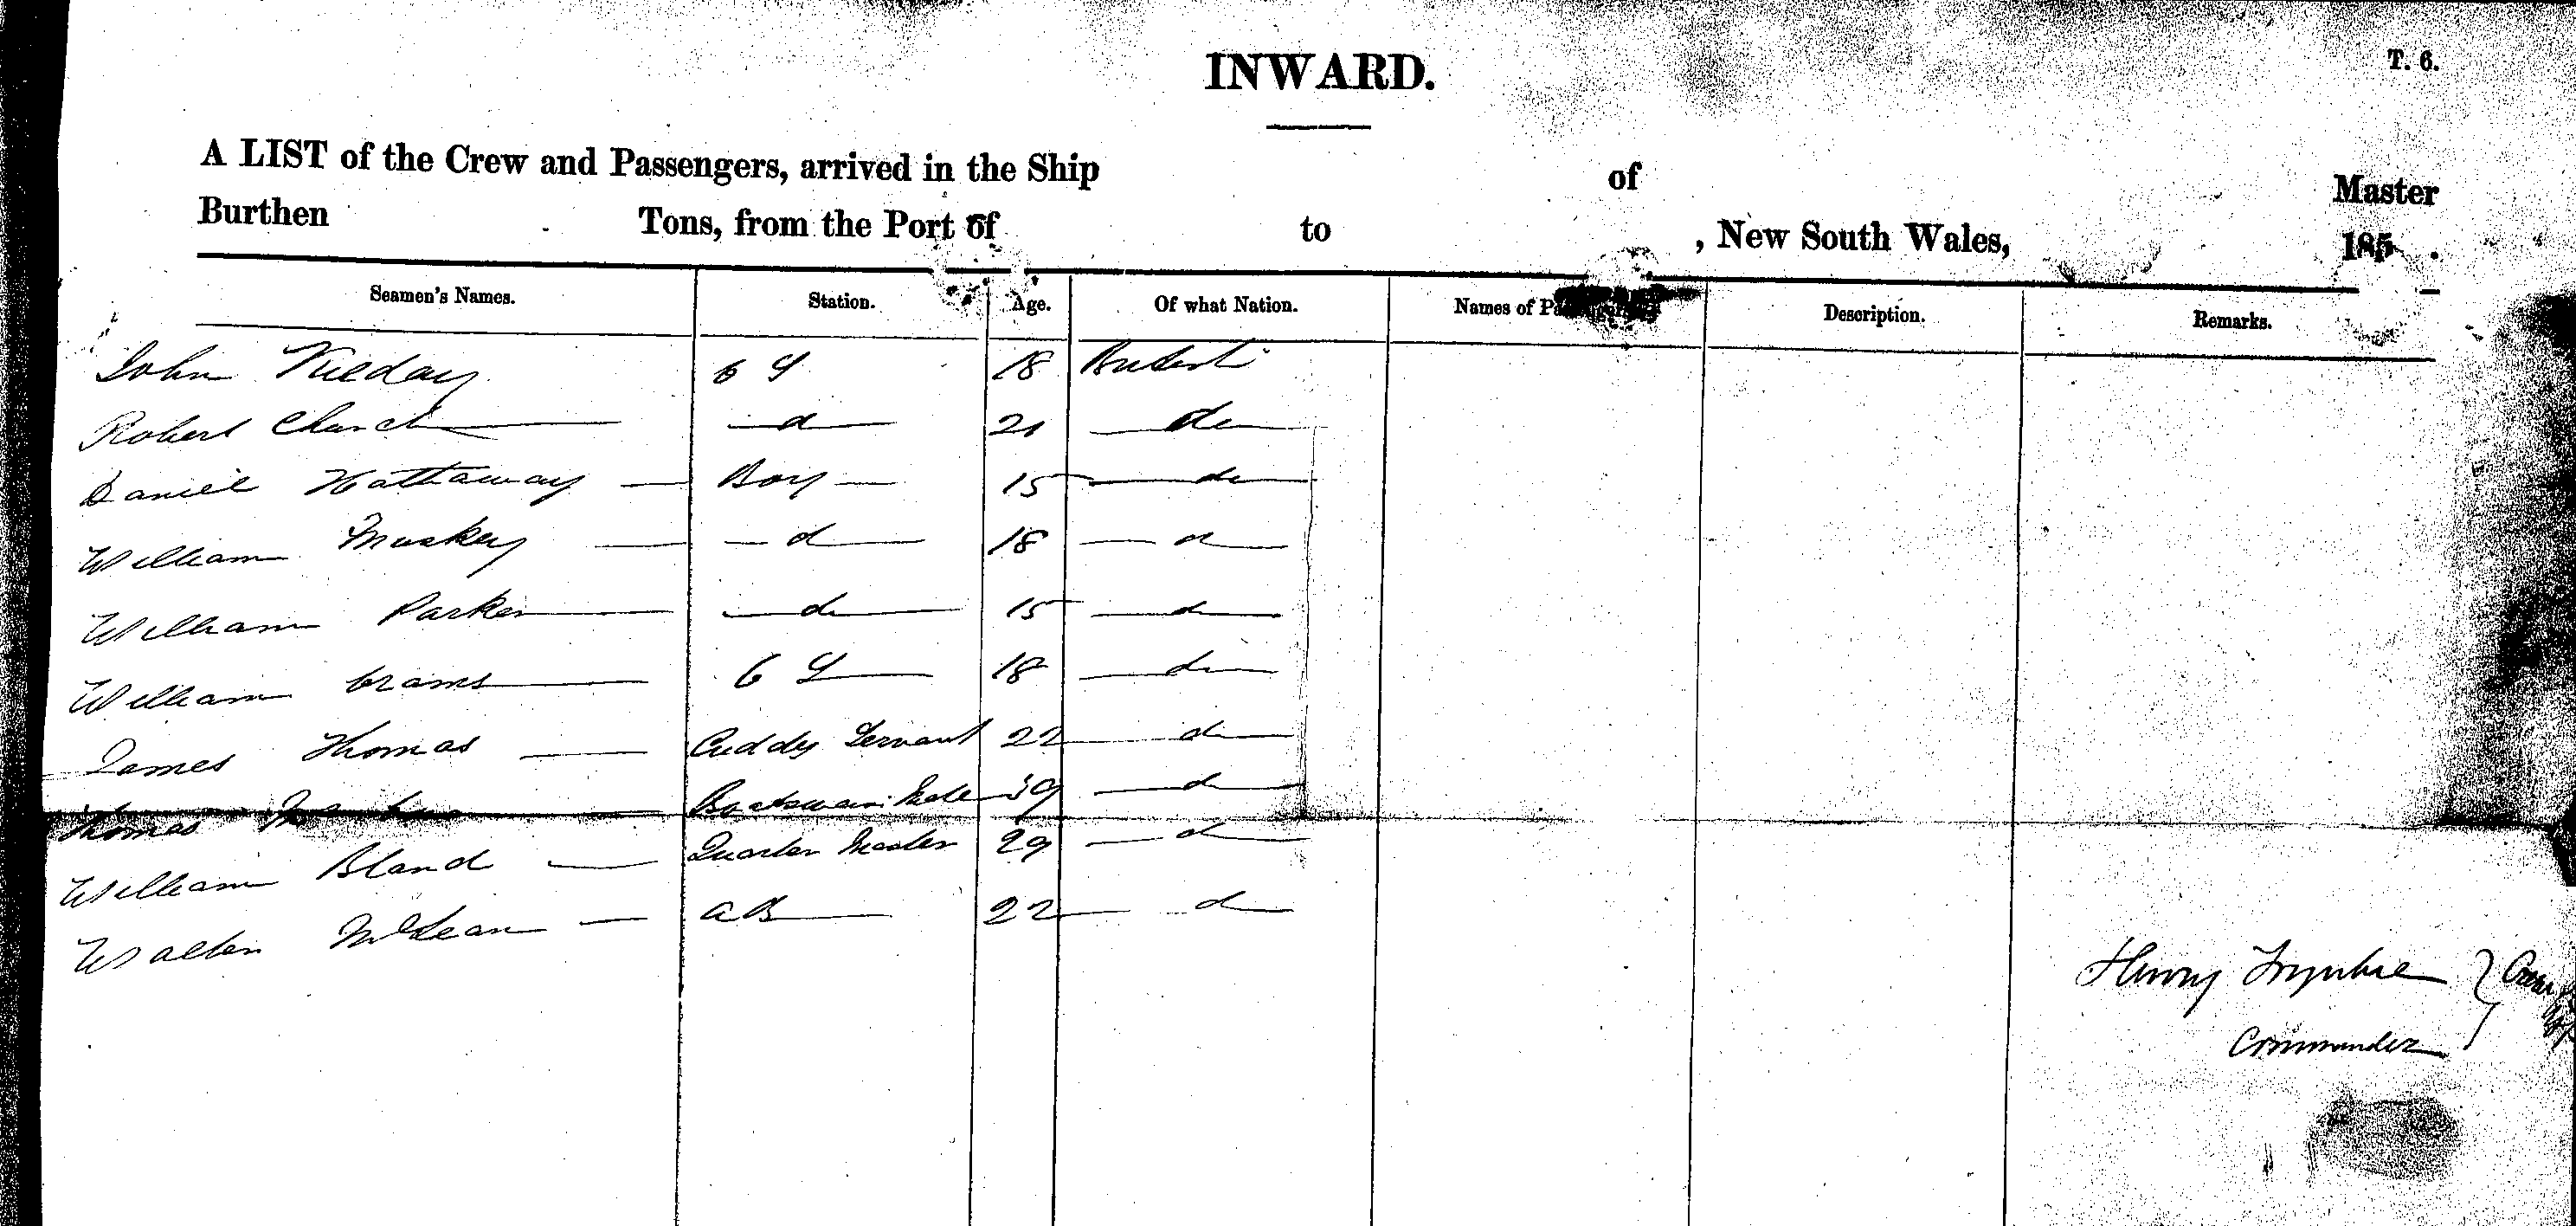 INWARD.
T. 6.
A LIST of the Crew and Passengers, arrived in the Ship of Master
Burthen Tons, from the Port of to , New South Wales, 185 .
Seamen's Names. Station. Age. Of what Nation. Names of Description. Remarks.
John 18 British
Robert Church d 21 do
Daniel Hattaway Boy 15 do
William d 18 d
William Parker do 15 do
William 18 do
James Thomas Cuddy Servant 22 d
Thomas Boatswains Mate 39 d
William Bland Quarter Master 29 d
Walter McLean AB 22 d
Henry
Commander